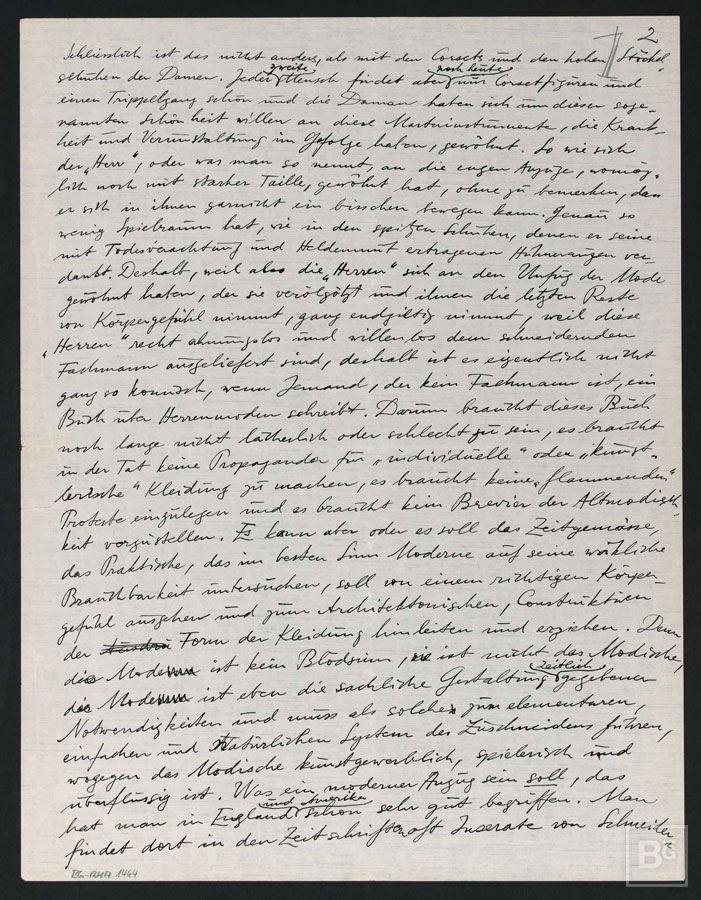 2
Schliesslich ist das nicht anders, als mit den Corsets und den hohen Stöckel-
schuhen der Damen. Jeder zweite Mensch findet aber noch heute nur Corsetfiguren und
einen Trippelgang schön und die Damen haben sich um dieser soge-
nannten Schönheit willen an diese Marterinstrumente, die Krank-
heit und Verunstaltung im Gefolge haben, gewöhnt. So wie sich
der „Herr", oder was man so nennt, an die engen Anzüge, womög-
lich noch mit starker Taille, gewöhnt hat, ohne zu bemerken, dass
er sich in ihnen garnicht ein bisschen bewegen kann. Genau so
wenig Spielraum hat, wie in den spitzen Schuhen, denen er seine
mit Todesverachtung und Heldenmut ertragenen Hühneraugen ver-
dankt. Deshalb, weil also die „Herren" sich an den Unfug der Mode
gewöhnt haben, der sie verölgötzt und ihnen die letzten Reste
von Körpergefühl nimmt, ganz endgiltig nimmt, weil diese
„Herren" recht ahnungslos und willenlos dem schneidernden
Fachmann ausgeliefert sind, deshalb ist es eigentlich nicht
ganz so komisch, wenn Jemand, der kein Fachmann ist, ein
Buch über Herrenmoden schreibt. Darum braucht dieses Buch
noch lange nicht lächerlich oder schlecht zu sein, es braucht
in der Tat keine Propaganda für „individuelle" oder „künst-
lerische" Kleidung zu machen, es braucht keine „flammenden"
Proteste einzulegen und es braucht kein Brevier der Altmodisch-
keit vorzustellen. Es kann aber oder es soll das Zeitgemässe,
das Praktische, das im besten Sinn Moderne auf seine wirkliche
Brauchbarkeit untersuchen, soll von einem richtigen Körper-
gefühl ausgehen und zum Architektonischen, Construktiven
der Form der Kleidung hinleiten und erziehen. Denn
die Mode ist kein Blödsinn, sie ist nicht das Modische,
die Mode ist eben die sachliche Gestaltung zeitlich gegebener
Notwendigkeiten und muss als solche zum elementaren,
einfachen und Natürlichen System des Zuschneidens führen,
wogegen das Modische kunstgewerblich, spielerisch und
überflüssig ist. Was ein moderner Anzug sein soll, das
hat man in England und Amerika schon sehr gut begriffen. Man
findet dort in den Zeitschriften oft Inserate von Schneider
BG-RHA 1464
BG